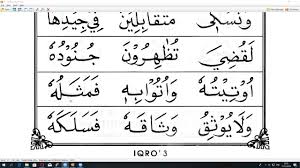 وَنُسَاقِي مُتَقَابِلِيْنَ فِيْ جِيْدِهَا
لَقُضِيَ تُظْهِرُوْنَ جُنُوْدُهٗ
اُوْتِيْتُهٗ وَاُتُوْابِهٖ فَمَثَلُهٗ
وَلَايُوْثِقُ وَثَاقَهٗ فَسَلَكَهٗ
IQRO' 5